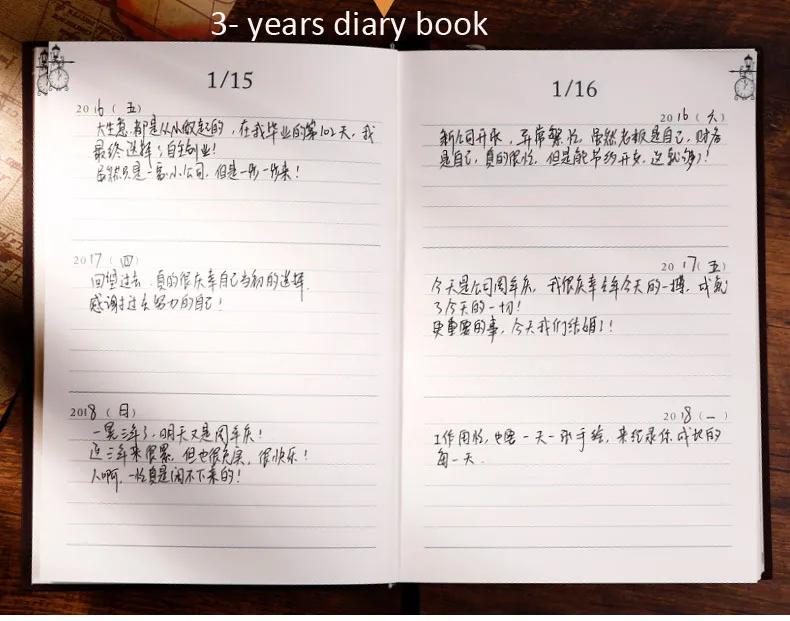 3- years diary book
1/15
2016 ( 五 )
大生意都是从小做起的，在我毕业的第102天，我
最终选择了自主创业！
虽然只是一家小公司，但是一步一步来！
2017 ( 四 )
回望过去，真的很庆幸自己当初的选择。
感谢过去努力的自己！
2018 ( 日 )
一晃三年了，明天又是周年庆！
这三年来很累，但也很充实，很快乐！
人啊，一忙真是闲不下来的！
1/16
2016 ( 六 )
新公司开张，异常繁忙，虽然老板是自己，财务
是自己，真的很忙，但是能节约开支，这就够了！
2017 ( 五 )
今天是公司周年庆，我很庆幸去年今天的一搏，成就
了今天的一切！
更重要的事，今天我们结婚了！
2018 ( 一 )
工作再忙，也要一天一张手绘，来纪录你成长的
每一天。